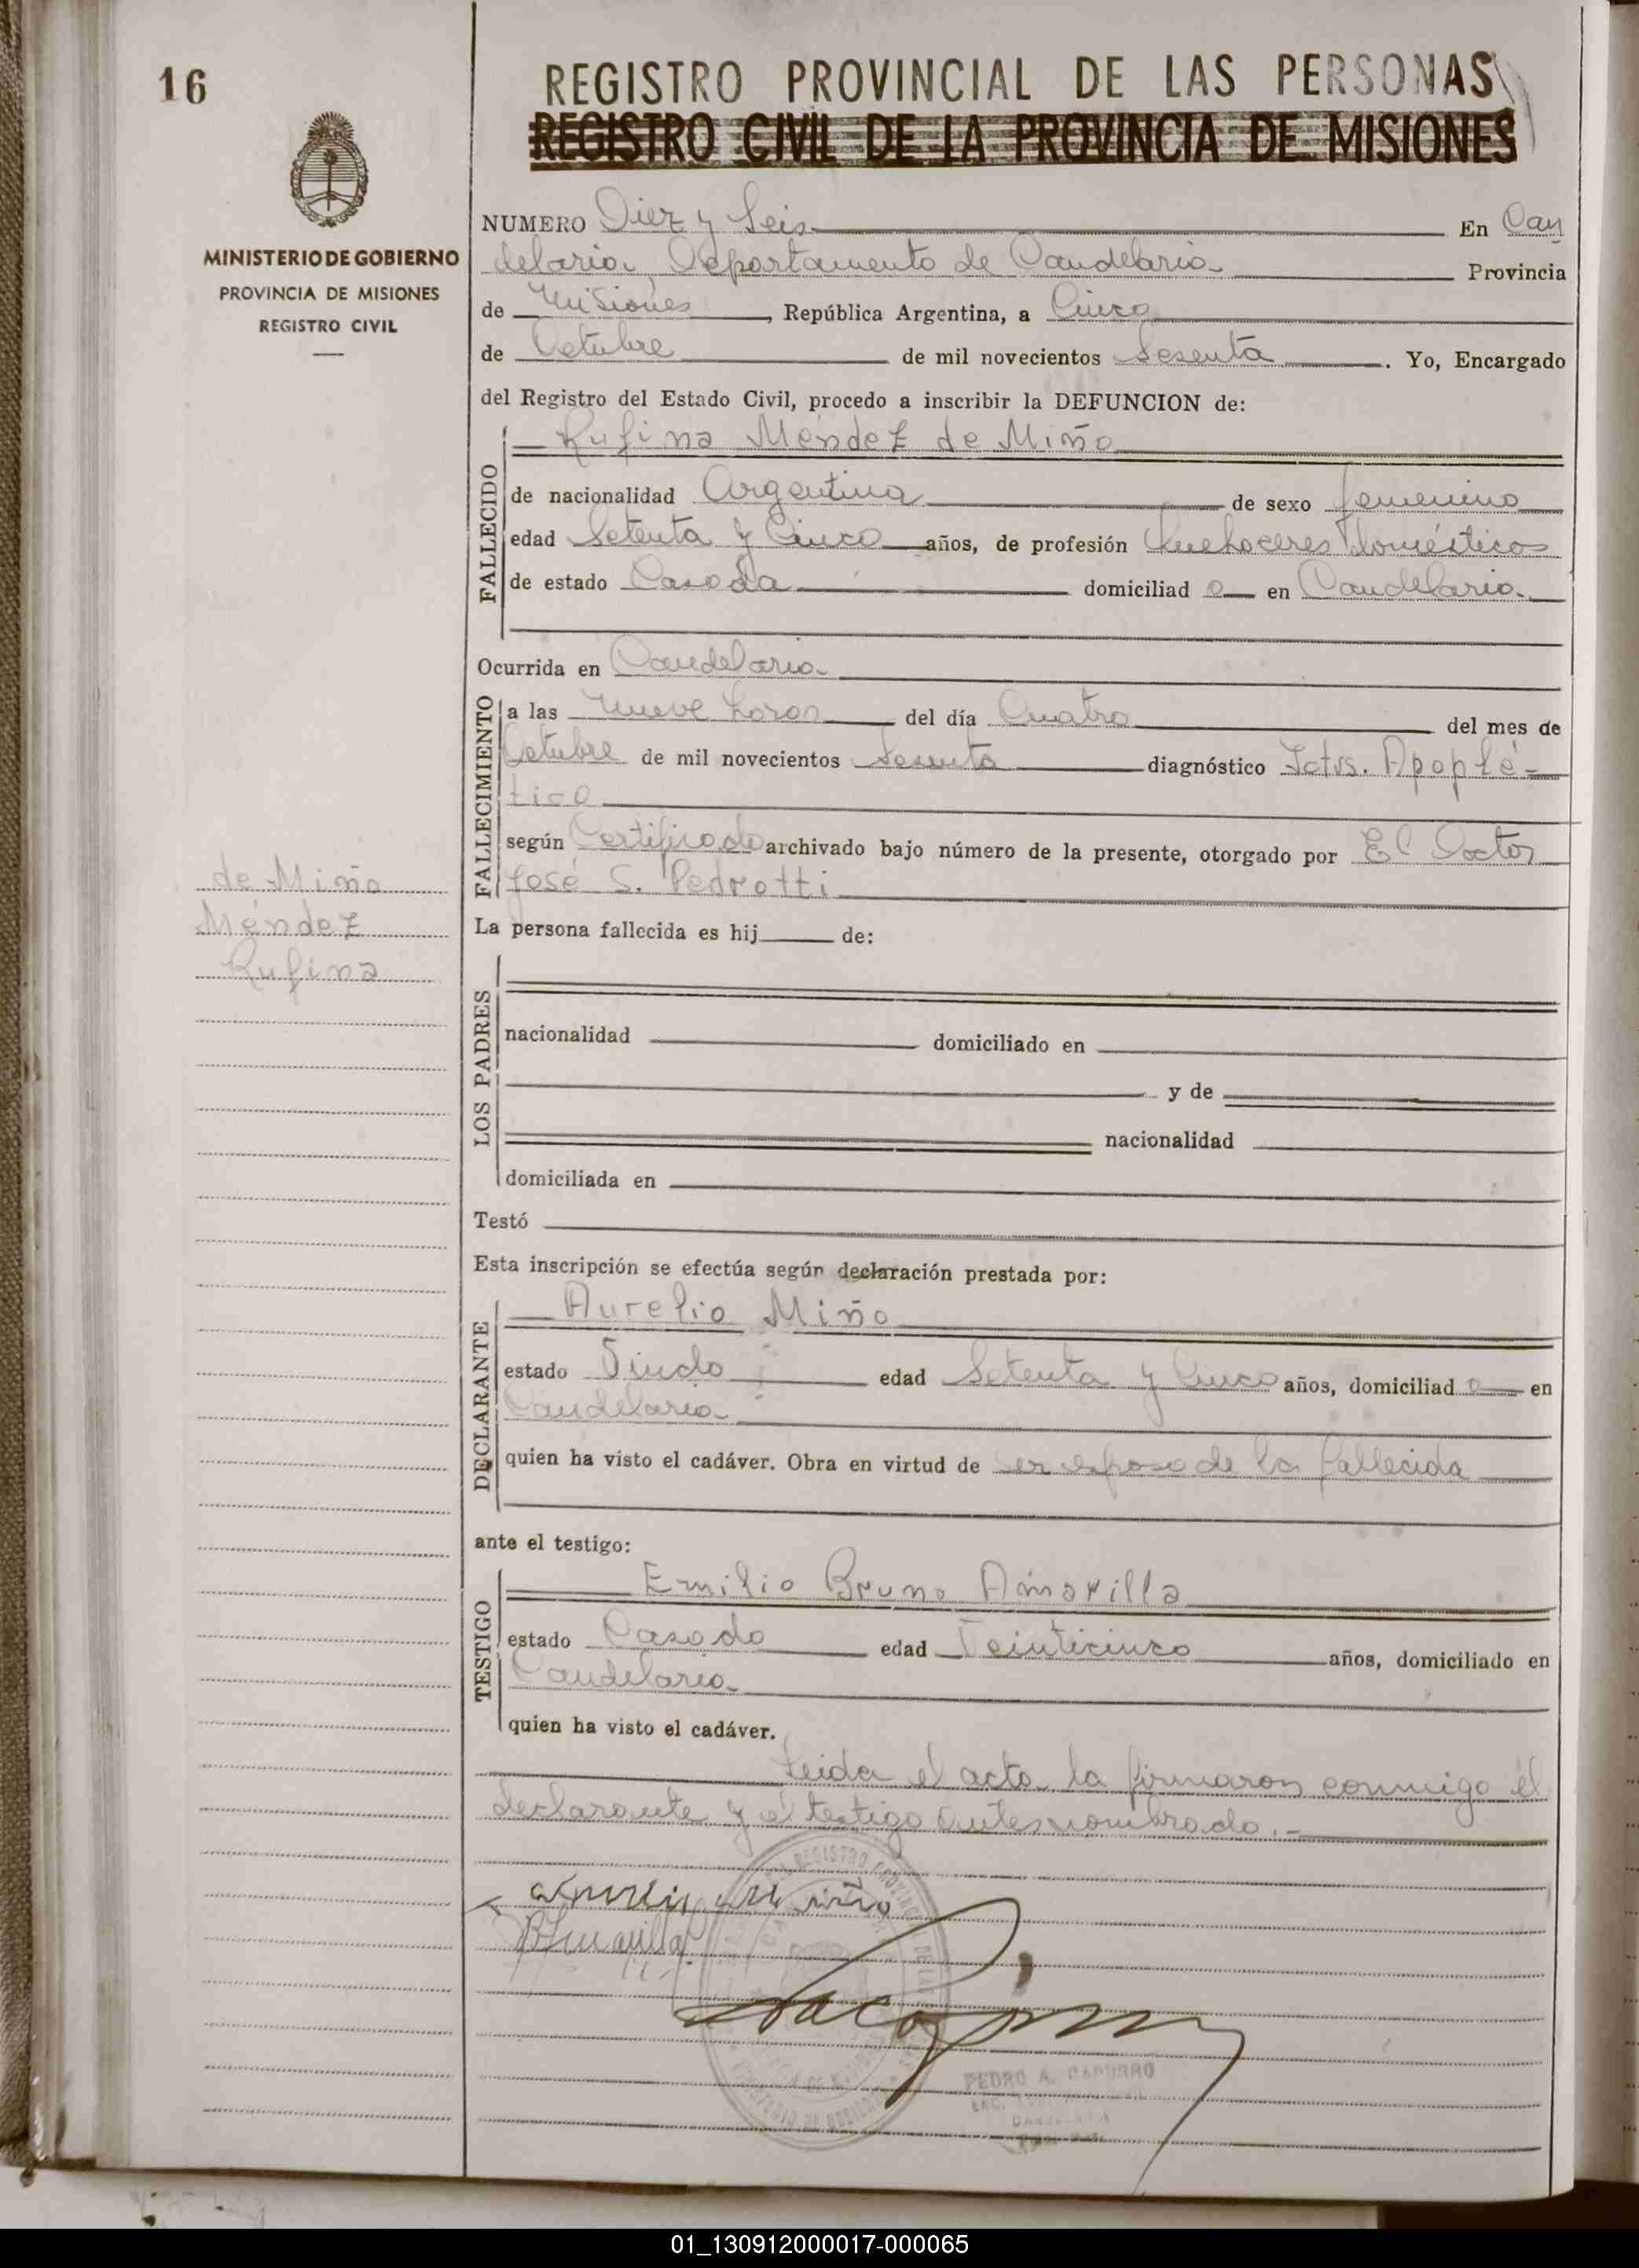 16
REGISTRO PROVINCIAL DE LAS PERSONAS
REGISTRO CIVIL DE LA PROVINCIA DE MISIONES
MINISTERIO DE GOBIERNO
PROVINCIA DE MISIONES
REGISTRO CIVIL
NUMERO Diez y Seis En Can
delaria, Departamento de Candelaria Provincia
de Misiones, República Argentina, a Cinco
de Octubre de mil novecientos Sesenta. Yo, Encargado
del Registro del Estado Civil, procedo a inscribir la DEFUNCION de:
Rufina Méndez de Miño
FALLECIDO
de nacionalidad Argentina de sexo femenino
edad Setenta y Cinco años, de profesión Quehaceres Domésticos
de estado Casada domiciliad a en Candelaria.
Ocurrida en Candelaria
FALLECIMIENTO
a las Nueve horas del día Cuatro del mes de
Octubre de mil novecientos Sesenta diagnóstico Ictus. Apoplé-
tico
según Certificado archivado bajo número de la presente, otorgado por El Doctor
José S. Pedrotti
de Miño
Méndez
Rufina
La persona fallecida es hij de:
LOS PADRES
nacionalidad domiciliado en
y de
nacionalidad
domiciliada en
Testó
Esta inscripción se efectúa según declaración prestada por:
Aurelio Miño
DECLARANTE
estado Viudo edad Setenta y Cinco años, domiciliad o en
Candelaria
quien ha visto el cadáver. Obra en virtud de ser esposo de la fallecida
ante el testigo:
Emilio Bruno Amarilla
TESTIGO
estado Casado edad Veinticinco años, domiciliado en
Candelaria
quien ha visto el cadáver.
Leida el acta la firmaron conmigo el
declarante y el testigo antesnombrado.-
Aurelio Miño
PEDRO A. CAPURRO
01_130912000017-000065